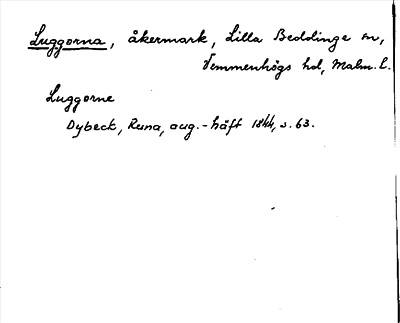 Luggorna, åkermark, Lilla Beddinge sn,
Vemmenhögs hd, Malm. l.
Luggorne
Dybeck, Runa, aug.-häft 1844, s. 63.